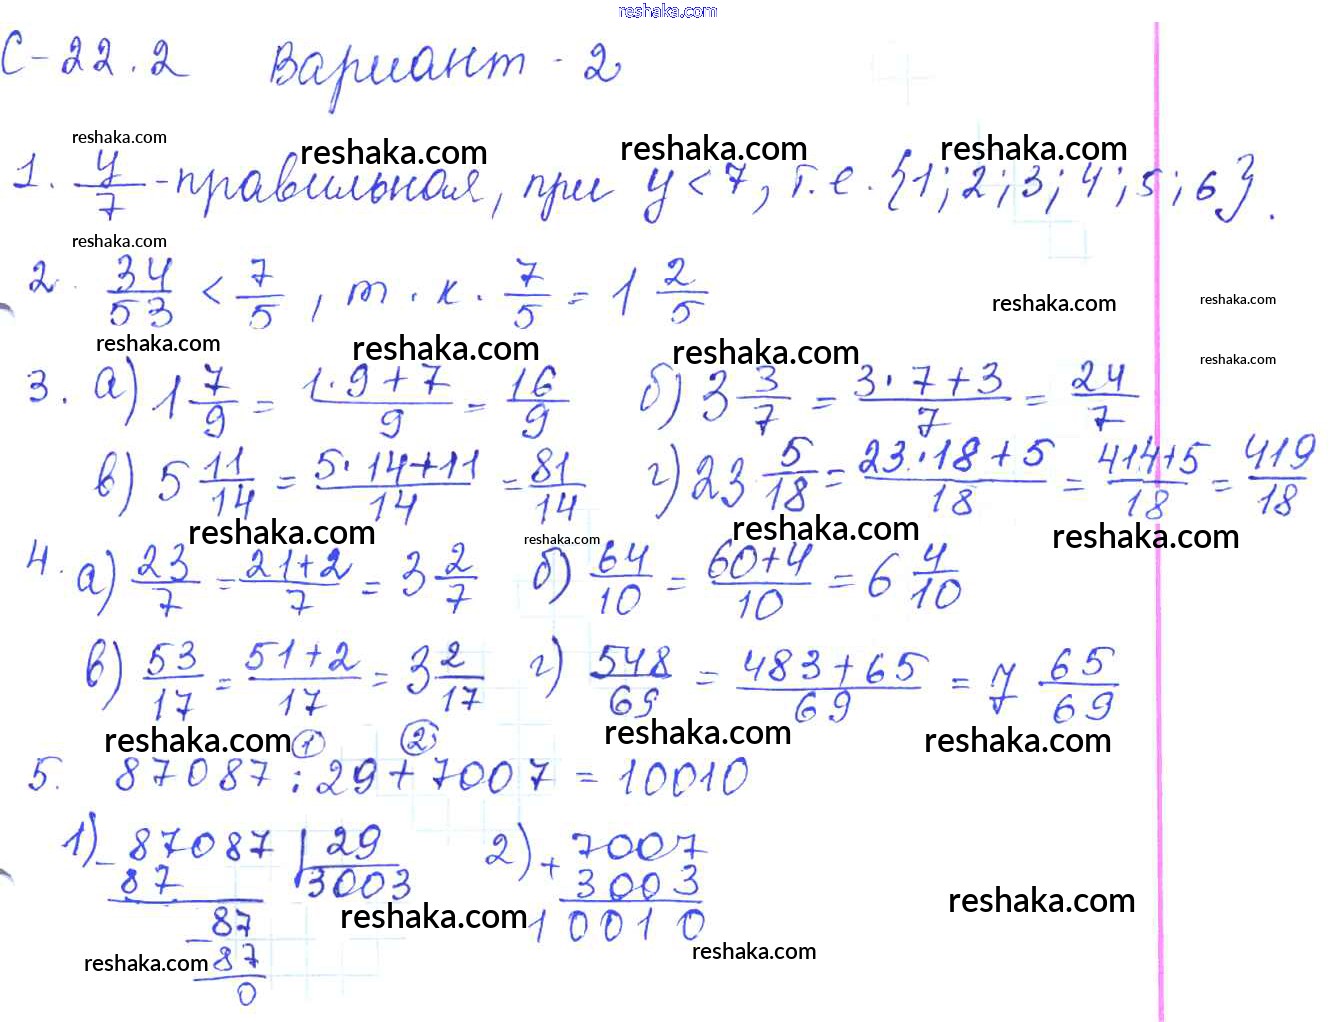 reshaka.com
С-22.2 Вариант - 2
reshaka.com reshaka.com reshaka.com reshaka.com
1. y/7 - правильная, при y < 7, т.е. {1; 2; 3; 4; 5; 6}.
reshaka.com
2. 34/53 < 7/5, т.к. 7/5 = 1 2/5
reshaka.com reshaka.com
reshaka.com reshaka.com reshaka.com reshaka.com
3. а) 1 7/9 = 1·9+7/9 = 16/9 б) 3 3/7 = 3·7+3/7 = 24/7
в) 5 11/14 = 5·14+11/14 = 81/14 г) 23 5/18 = 23·18+5/18 = 414+5/18 = 419/18
reshaka.com reshaka.com reshaka.com reshaka.com
4. а) 23/7 = 21+2/7 = 3 2/7 б) 64/10 = 60+4/10 = 6 4/10
в) 53/17 = 51+2/17 = 3 2/17 г) 548/69 = 483+65/69 = 7 65/69
reshaka.com reshaka.com reshaka.com
① ②
5. 87087 : 29 + 7007 = 10010
1) - 87087 | 29 2) + 7007
87 3003 3003
reshaka.com reshaka.com
- 87 10010
reshaka.com reshaka.com
87
0